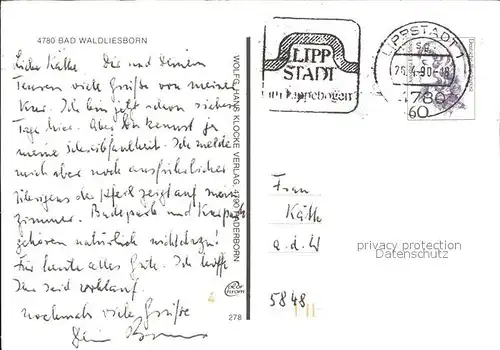 4780 BAD WALDLIESBORN
Liebe Käthe Dir und Deinen
Teuren viele Grüße von meiner
Kur. Ich bin jetzt schon sieben
Tage hier. Aber Du kennst ja
meine Schreibfaulheit. Ich melde
mich aber noch ausführlicher
Übrigens der Pfeil zeigt auf mein
Zimmer. Badepark und Kurpark
gehören natürlich nicht dazu!
Für heute alles Gute. Ich hoffe
Ihr seid wohlauf.
nochmals viele Grüße
Dein
WOLFG. HANS KLOCKE VERLAG, 4790 PADERBORN
278
LIPP
STADT
im Lippebogen
LIPPSTADT 1
4780
60
Frau
Käthe
a.d.W
5848
privacy protection
Datenschutz